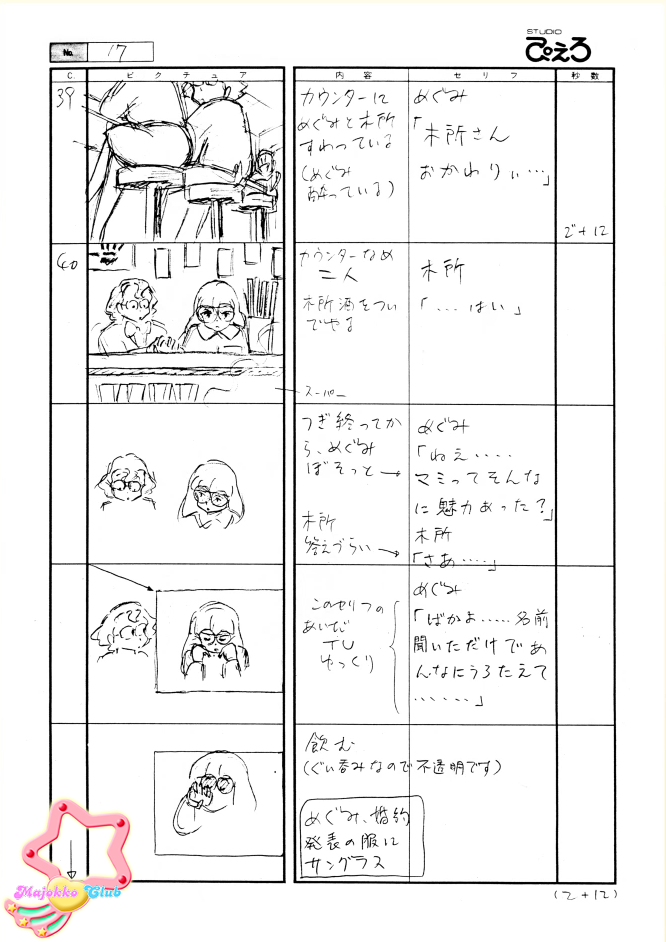 No. 17
STUDIO
ぴえろ
C. ピクチュア 内容 セリフ 秒数
39
カウンターに
めぐみと木所
すわっている
(めぐみ
酔っている)
めぐみ
「木所さん
おかわりぃ…」
2+12
40
カウンターなめ
二人
木所酒をつい
でやる
木所
「…はい」
スーパー
つぎ終ってか
ら、めぐみ
ぼそっと→
めぐみ
「ねえ‥‥
マミってそんな
に魅力あった?」
木所
答えづらい→
木所
「さあ‥‥」
このセリフの
あいだ
TU
ゆっくり
めぐみ
「ばかよ‥‥‥名前
聞いただけであ
んなにうろたえて
‥‥‥」
飲む
(ぐい呑みなので不透明です)
めぐみ、婚約
発表の服に
サングラス
(2+12)
Majokko Club